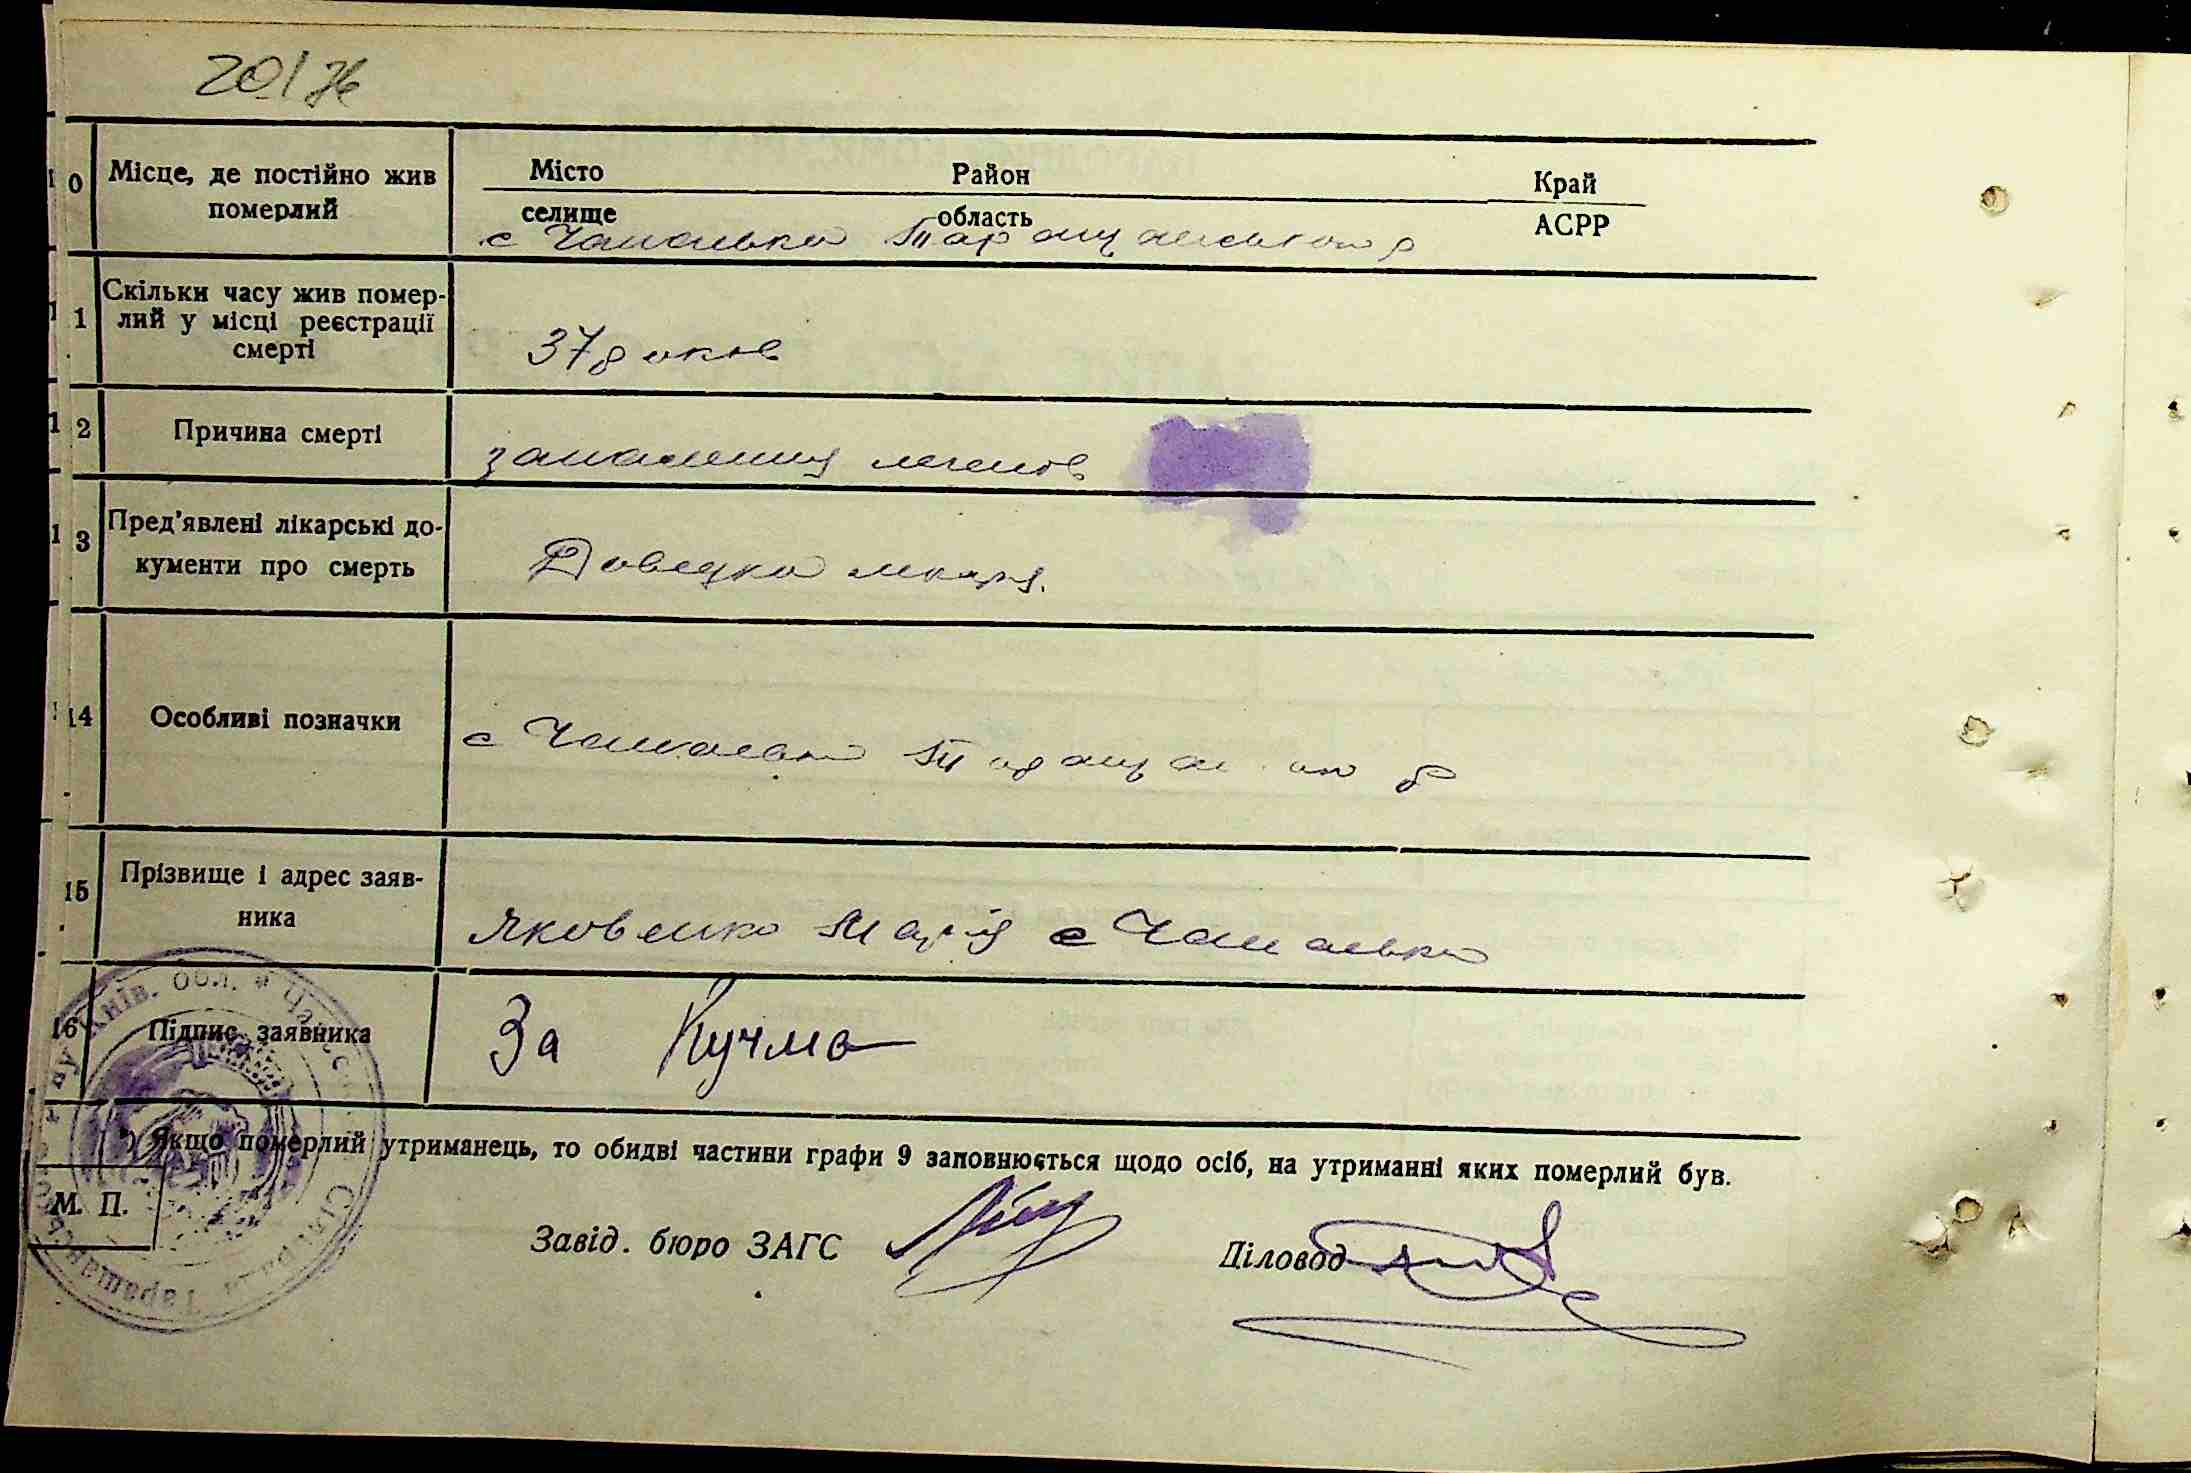 20/ж
10 Місце, де постійно жив померлий
Місто Район Край
селище область АСРР
с Чапаєвка Таращанського р
11 Скільки часу жив помер-
лий у місці реєстрації
смерті
37 років
12 Причина смерті
запалення легенів
13 Пред'явлені лікарські до-
кументи про смерть
Довідка лікаря.
14 Особливі позначки
с Таращан р
15 Прізвище і адрес заяв-
ника
Яковенко Марія с
16 Підпис заявника
За Кучма
*) Якщо померлий утриманець, то обидві частини графи 9 заповнюється щодо осіб, на утриманні яких померлий був.
М. П.
Завід. бюро ЗАГС Діловод